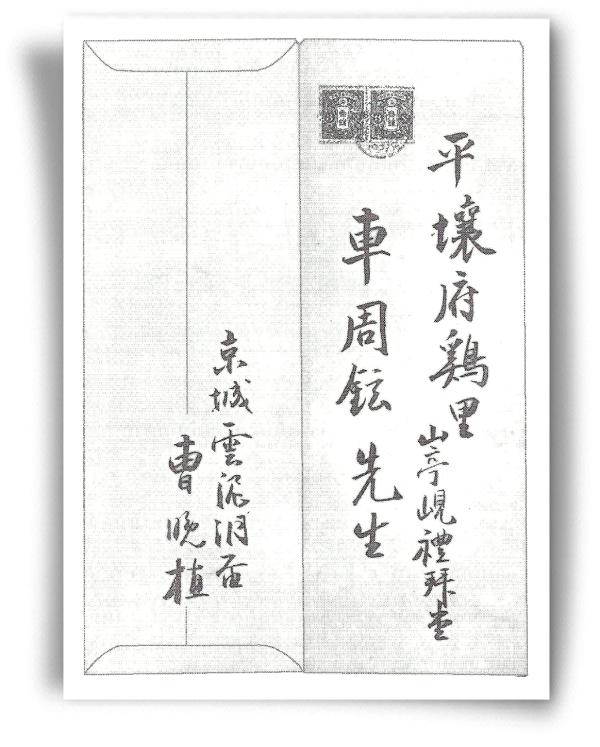 平壤府鷄里
山亭峴禮拜堂
車周鉉 先生
京城雲泥洞
曹晩植